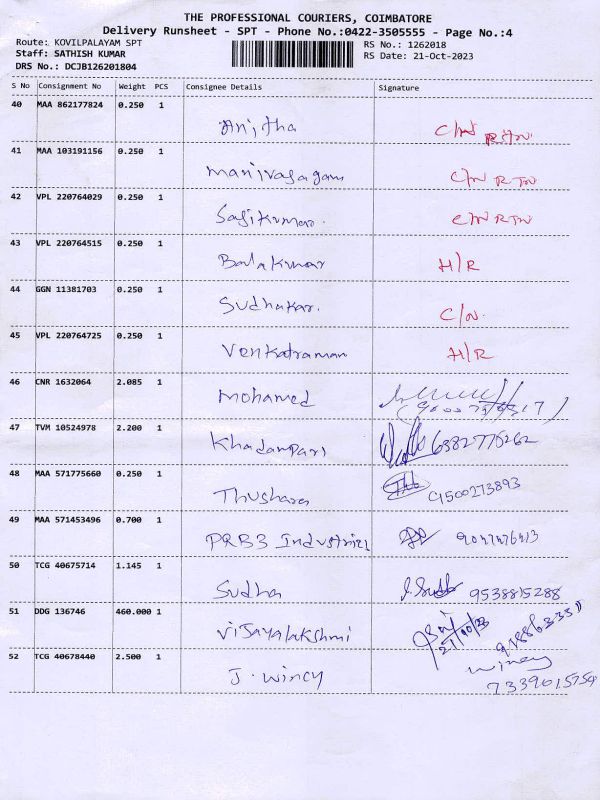 THE PROFESSIONAL COURIERS, COIMBATORE
Delivery Runsheet - SPT - Phone No.:0422-3505555 - Page No.:4
Route: KOVILPALAYAM SPT
RS No.: 1262018
Staff: SATHISH KUMAR
RS Date: 21-Oct-2023
DRS No.: DCJB126201804
S No Consignment No Weight PCS Consignee Details Signature
40 MAA 862177824 0.250 1 Anitha C/N RTN
41 MAA 103191156 0.250 1 Manivasagam C/N RTN
42 VPL 220764029 0.250 1 Sasikumar. C/N RTN
43 VPL 220764515 0.250 1 Balakumar H/R
44 GGN 11381703 0.250 1 Sudhakar. C/N.
45 VPL 220764725 0.250 1 Venkatraman H/R
46 CNR 1632064 2.085 1 Mohamed
47 TVM 10524978 2.200 1 Khadampari 6382775262
48 MAA 571775660 0.250 1 Thushara 9500273893
49 MAA 571453496 0.700 1 PRB3 Industries
50 TCG 40675714 1.145 1 Sudha 9538815288
51 DDG 136746 460.000 1 Vijayalakshmi
52 TCG 40678440 2.500 1 J. Wincy Wincy